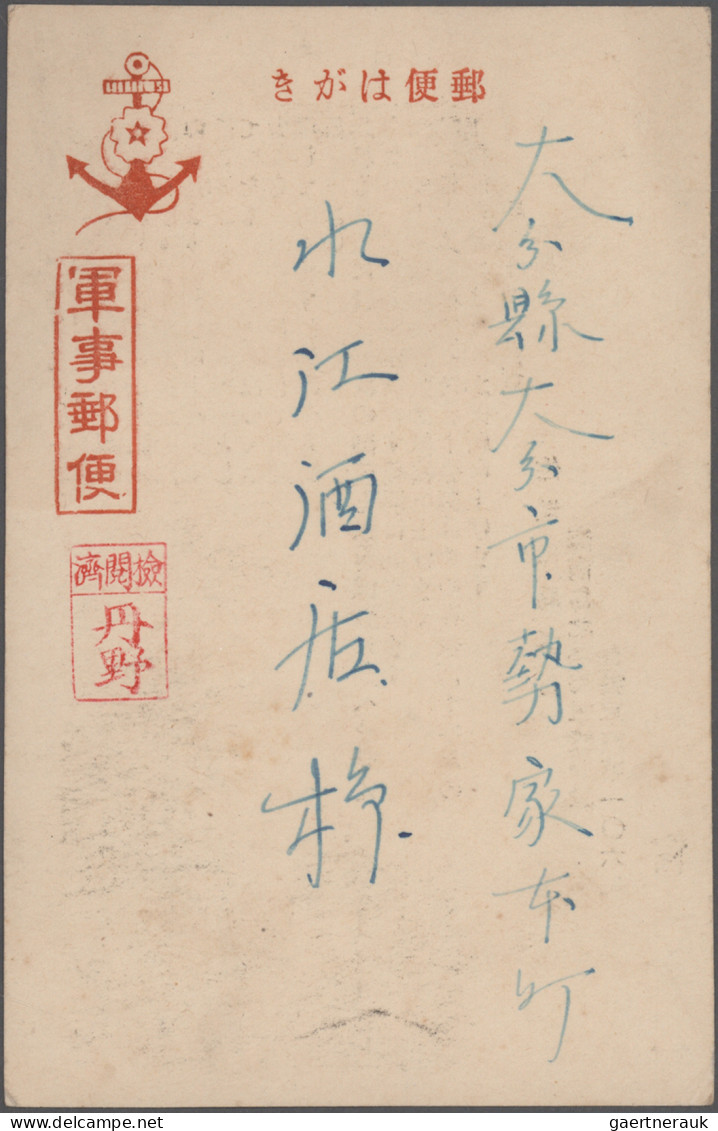 きがは便郵
大分縣大分市勢家本町
水江酒店様
軍事郵便
濟閲檢
丹野
gaertnerauk